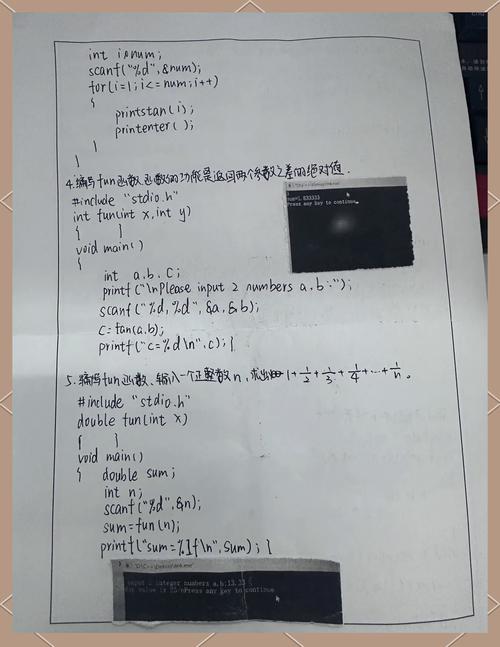 int i,num;
scanf("%d",&num);
for(i=1;i<=num;i++)
{
printstan(i);
printenter( );
}
}
4.编写fun函数,函数的功能是返回两个参数之差的绝对值.
#include "stdio.h"
int fun(int x,int y)
{ }
void main()
int a.b.c;
printf("\nPlease input 2 numbers a,b:");
scanf("%d,%d",&a,&b);
c=fan(a,b);
printf("c=%d\n",c);}
sum=1.833333
Press any key to continue
5.编写fun函数、输入一个正整数n,求出1+1/2+1/3+1/4+…+1/n。
#include "stdio.h"
double fun(int x)
{ }
void main()
{ double sum;
int n;
scanf("%d",&n);
sum=fun(n);
printf("sum=%lf\n",sum);}
input 2 integer numbers a,b:13,33
value is 20\nPress any key to continue